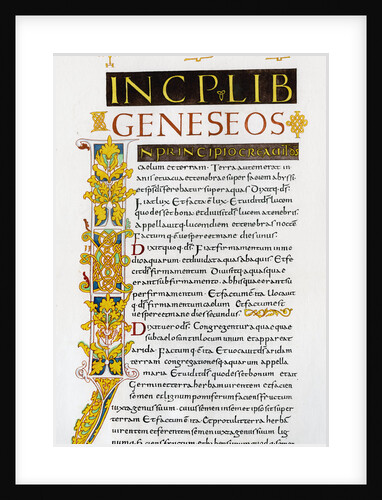 INCP LIB
GENESEOS
IN PRINCIPIO CREAVIT DS
caelum et terram. Terra autem erat in
anis et vacua et tenebrae super faciem abyssi
et sps di ferebatur super aquas. Dixitq; ds.
Fiat lux. Et facta e lux. Et vidit ds lucem
quod esset bona. et divisit ds lucem a tenebris.
appellavitq; lucem diem et tenebras noctem
Factumq; e vespere et mane dies unus.
Dixit quoq; ds. Fiat firmamentum in me
dio aquarum. et dividat aquas ab aquis. Et fe
cit ds firmamentum. divisitq; aquas quae
erant sub firmamento. ab his quae erant su
per firmamentum. Et factum e ita. Vocavit
q; ds firmamentum caelum. Et factum est
vespere et mane dies secundus.
Dixit vero ds. Congregentur aquae quae
sub caelo sunt in locum unum. et appareat
arida. Factumq; e ita. Et vocavit ds aridam
terram. congregationesq; aquarum appella
maria. Et vidit ds quod esset bonum. et ait
Germinet terra herbam virentem et facien
semen. et lignum pomiferum faciens fructum
iuxta genus suum. cuius semen in semetipso sit super
terram. Et factum e ita. Et protulit terra her
bam virentem et ferentem semen iuxta genus suum
lignumq; faciens fructum